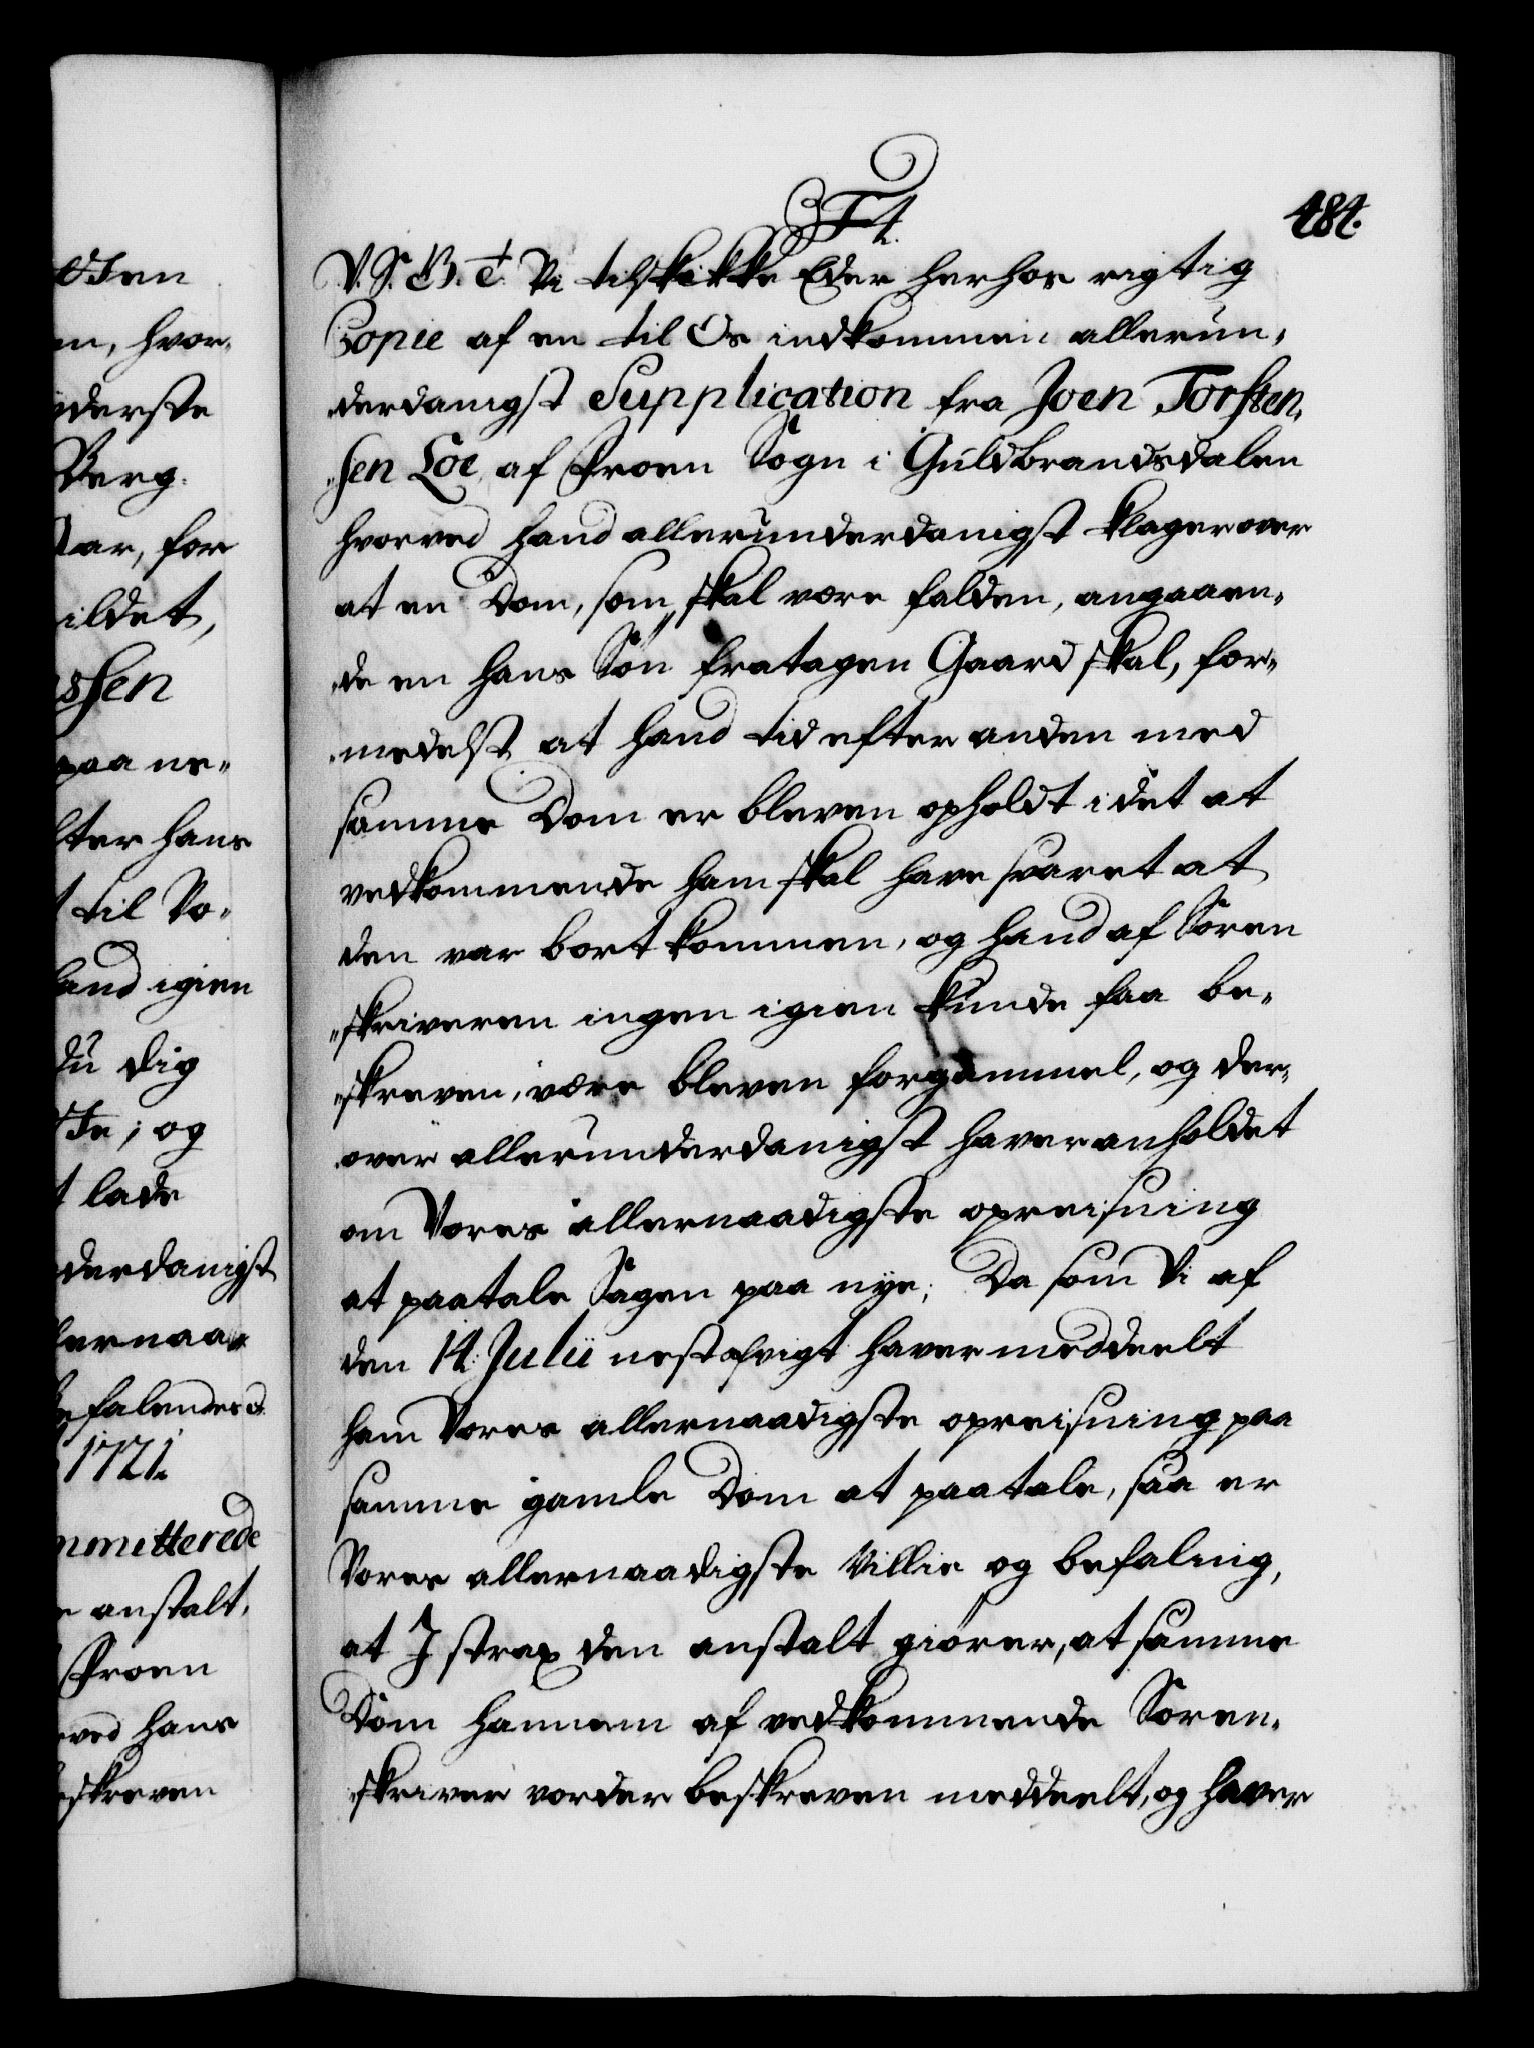 F4.
484.
V. S. B. T. Vi tilskikke Eder herhos rigtig
Copie af en til Os indkommen allerun¬
derdanigst Supplication fra Joen Torsten¬
sen Loe, af Froen Sogn i Guldbrandsdalen
hvorved hand allerunderdanigst klager over
at en Dom, som skal være falden, angaaen¬
de en hans Søn fratagen Gaard skal, for¬
medelst at hand tid efter anden med
samme Dom er bleven opholdt i det at
vedkommende ham skal have svaret at
den var bortkommen, og hand af Soren
skriveren ingen igien kunde faa be¬
skreven, være bleven forgammel, og der¬
over allerunderdanigst haver anholdet
om Vores allernaadigste opreisning
at paatale Sagen paa nye; Da som Vi af
den 14. Julii nestafvigt haver meddeelt
ham Vores allernaadigste opreisning paa
samme gamle Dom at paatale, saa er
Vores allernaadigste Villie og befaling,
at I strax den anstalt giører, at samme
Dom hannem af vedkommende Soren¬
skriver vorder beskreven meddeelt, og haver
n, hvor¬
derste
Berg¬
ar, for
ildet,
ssen
paa ne¬
ter hans
til Vo¬
and igien
du dig
og
lade
derdanigst
lernaa¬
befalendes
1721.
mmitterede
anstalt,
Froen
ved hans
skreven